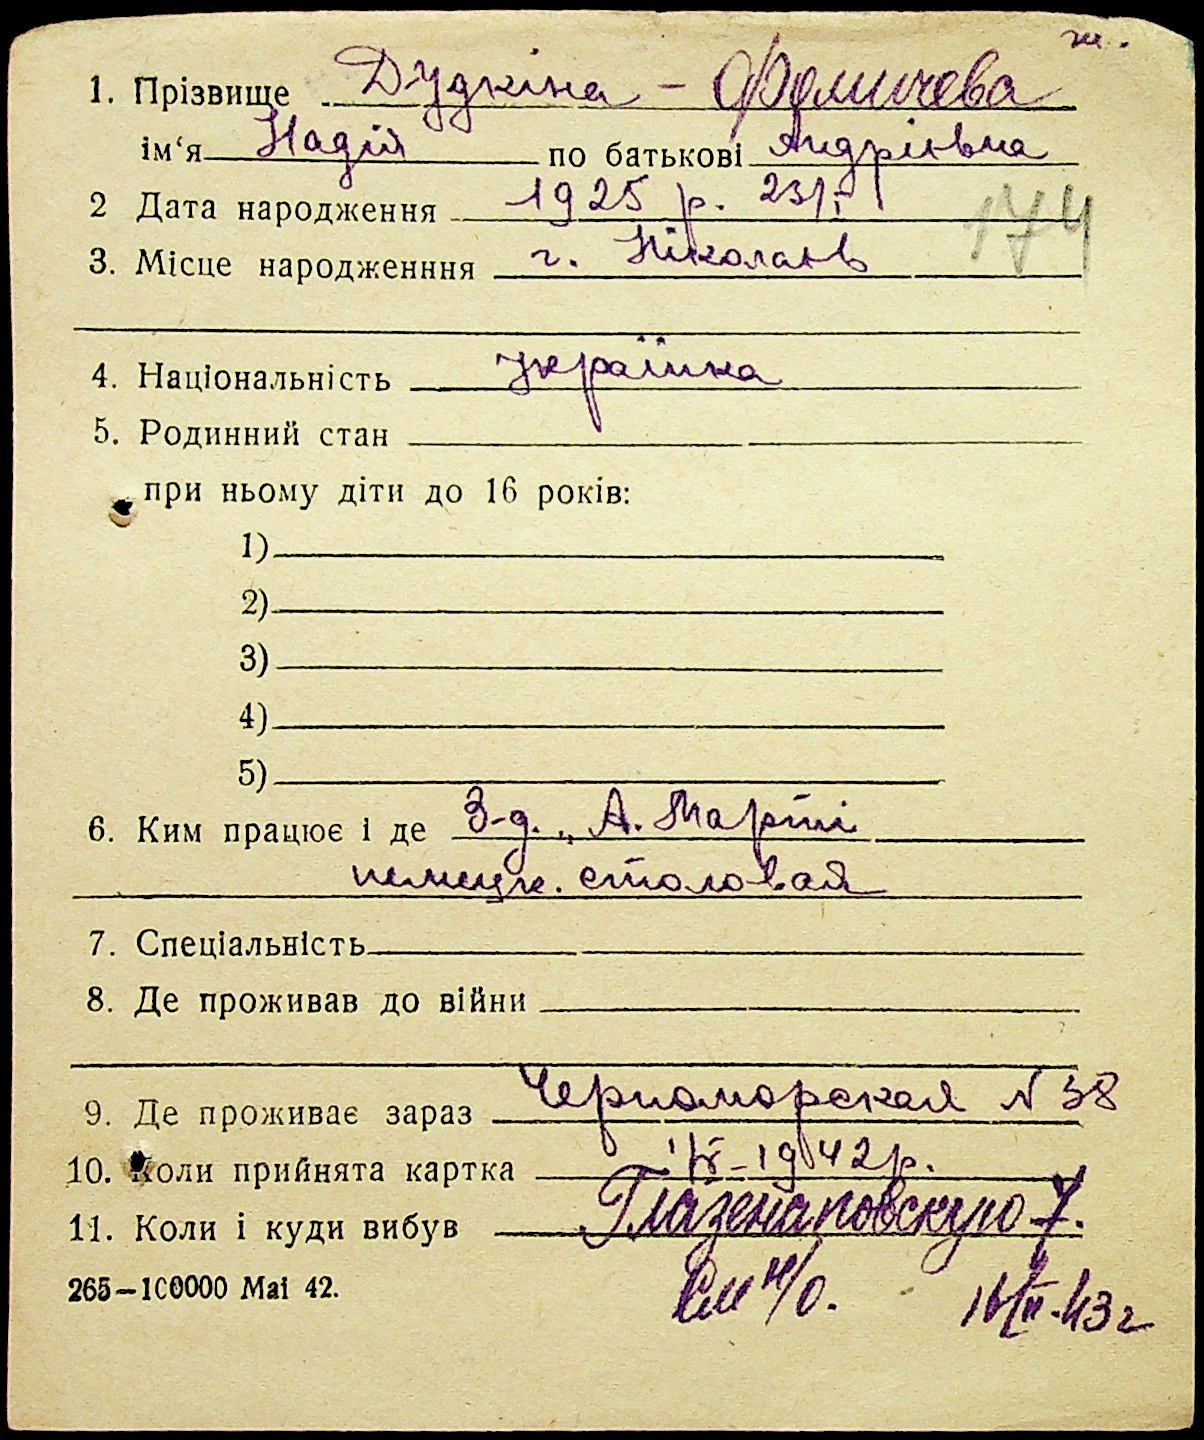 ж.
1. Прізвище Дудкіна – Фомичева
ім‘я Надія по батькові Андріївна
2 Дата народження 1925 р. 23/I
174
3. Місце народженння г. Ніколаїв
4. Національність українка
5. Родинний стан
при ньому діти до 16 років:
1)
2)
3)
4)
5)
6. Ким працює і де З-д. „А. Марті
немецк. столовая
7. Спеціальність
8. Де проживав до війни
9. Де проживає зараз Черноморская N 38
10. Коли прийнята картка 1942 р.
11. Коли і куди вибув Глазенаповскую 7.
265–100000 Mai 42.
См н/о. II-43 г